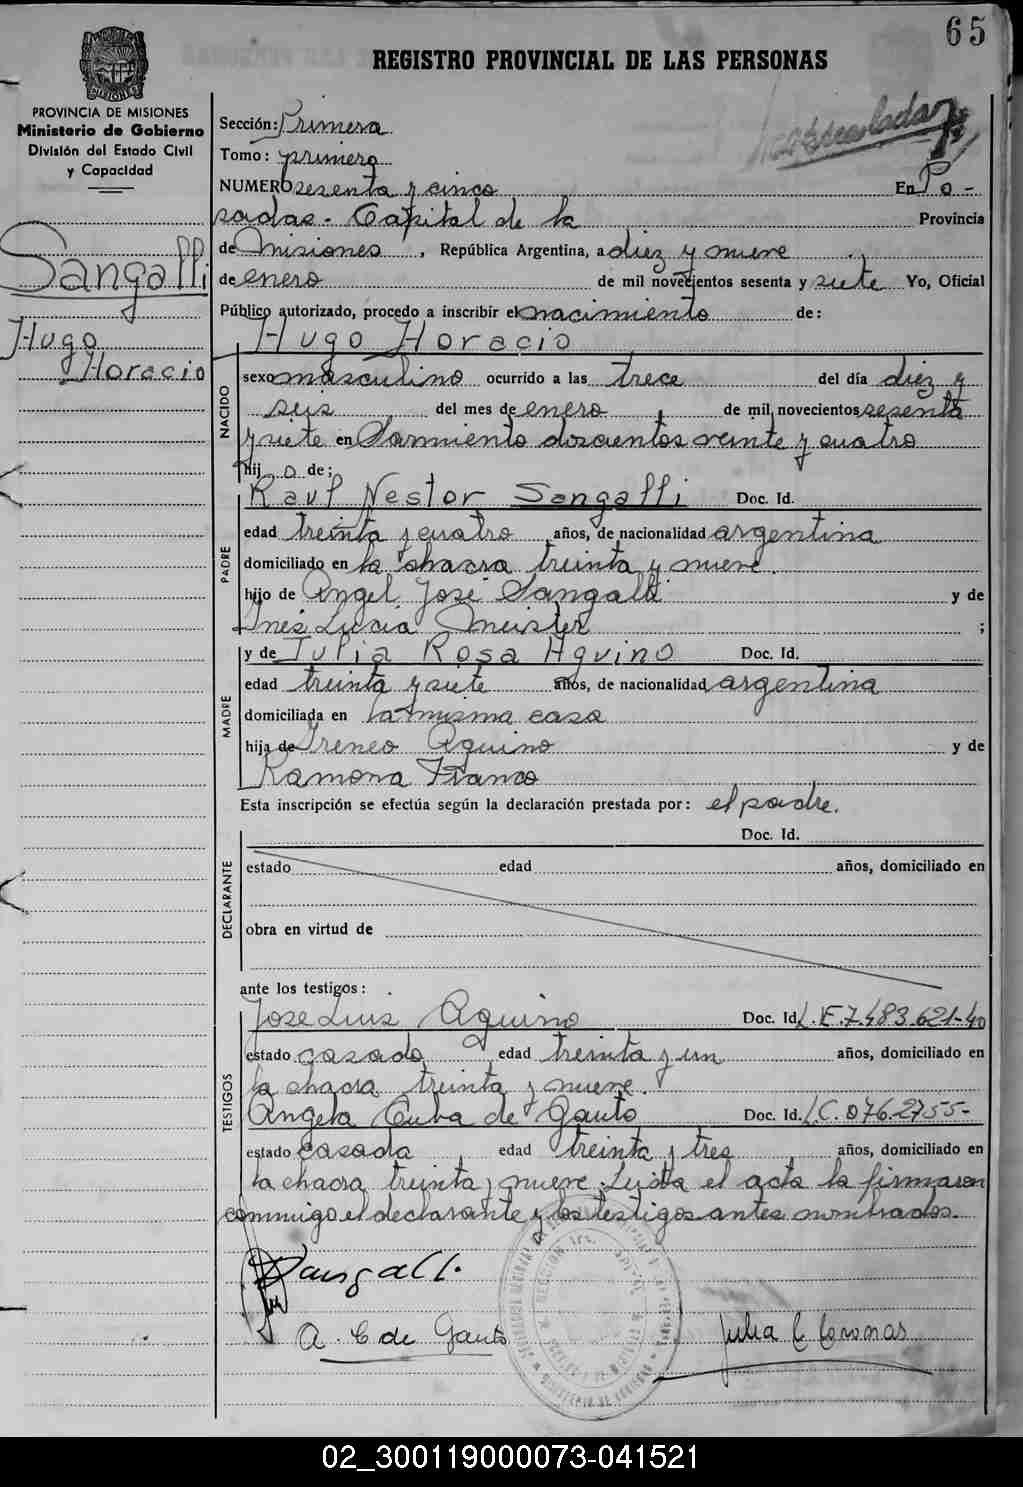 65
REGISTRO PROVINCIAL DE LAS PERSONAS
PROVINCIA DE MISIONES
Ministerio de Gobierno
División del Estado Civil
y Capacidad
Sangalli
Hugo
Horacio
Sección: Primera
Tomo: primero
NUMERO sesenta y cinco En Po-
sadas - Capital de la Provincia
de Misiones, República Argentina, a diez y nueve
de enero de mil novecientos sesenta y siete Yo, Oficial
Público autorizado, procedo a inscribir el nacimiento de:
Hugo Horacio
NACIDO
sexo masculino ocurrido a las trece del día diez y
seis del mes de enero, de mil novecientos sesenta
y siete en Sarmiento doscientos veinte y cuatro
hij o de;
PADRE
Raul Nestor Sangalli Doc. Id.
edad treinta y cuatro años, de nacionalidad argentina
domiciliado en la chacra treinta y nueve.
hijo de Angel José Sangalli y de
Inés Lucia Meister ;
MADRE
y de Julia Rosa Aquino Doc. Id.
edad treinta y siete años, de nacionalidad argentina
domiciliada en la misma casa
hija de Ireneo Aquino y de
Ramona Franco
Esta inscripción se efectúa según la declaración prestada por: el padre.
DECLARANTE
Doc. Id.
estado edad años, domiciliado en
obra en virtud de
ante los testigos:
TESTIGOS
Jose Luis Aquino Doc. Id. L.E.7.483.621-40
estado casado edad treinta y un años, domiciliado en
la chacra treinta y nueve.
Angela Cuba de Gauto Doc. Id. L.C.076.2755-
estado casada, edad treinta y tres, años, domiciliado en
la chacra treinta y nueve. Leida el acta la firmaron
conmigo el declarante y los testigos antes nombrados.
Sangalli
A. C de Gauto
Julia C Coronas
02_300119000073-041521